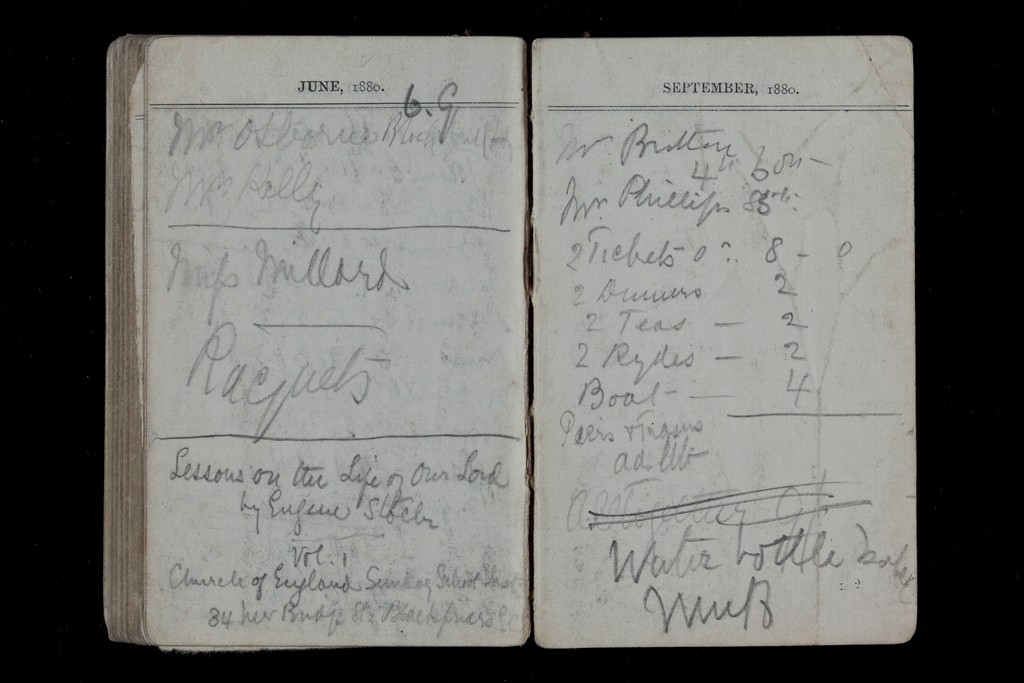 JUNE, 1880.
6. 9
Mr Osborne
Mr Kelly
Miss Millard
Racquets
Lessons on the Life of Our Lord
by Eugene Stock
Vol. 1
Church of England Sunday School Inst
34 New Bridge St Blackfriars EC
SEPTEMBER, 1880.
Mr. Britten
4
Mr. Phillips
2 Tickets 8 - 0
2 Dinners 2
2 Teas — 2
2 Rydes — 2
Boat — 4
ad lib
Water bottle